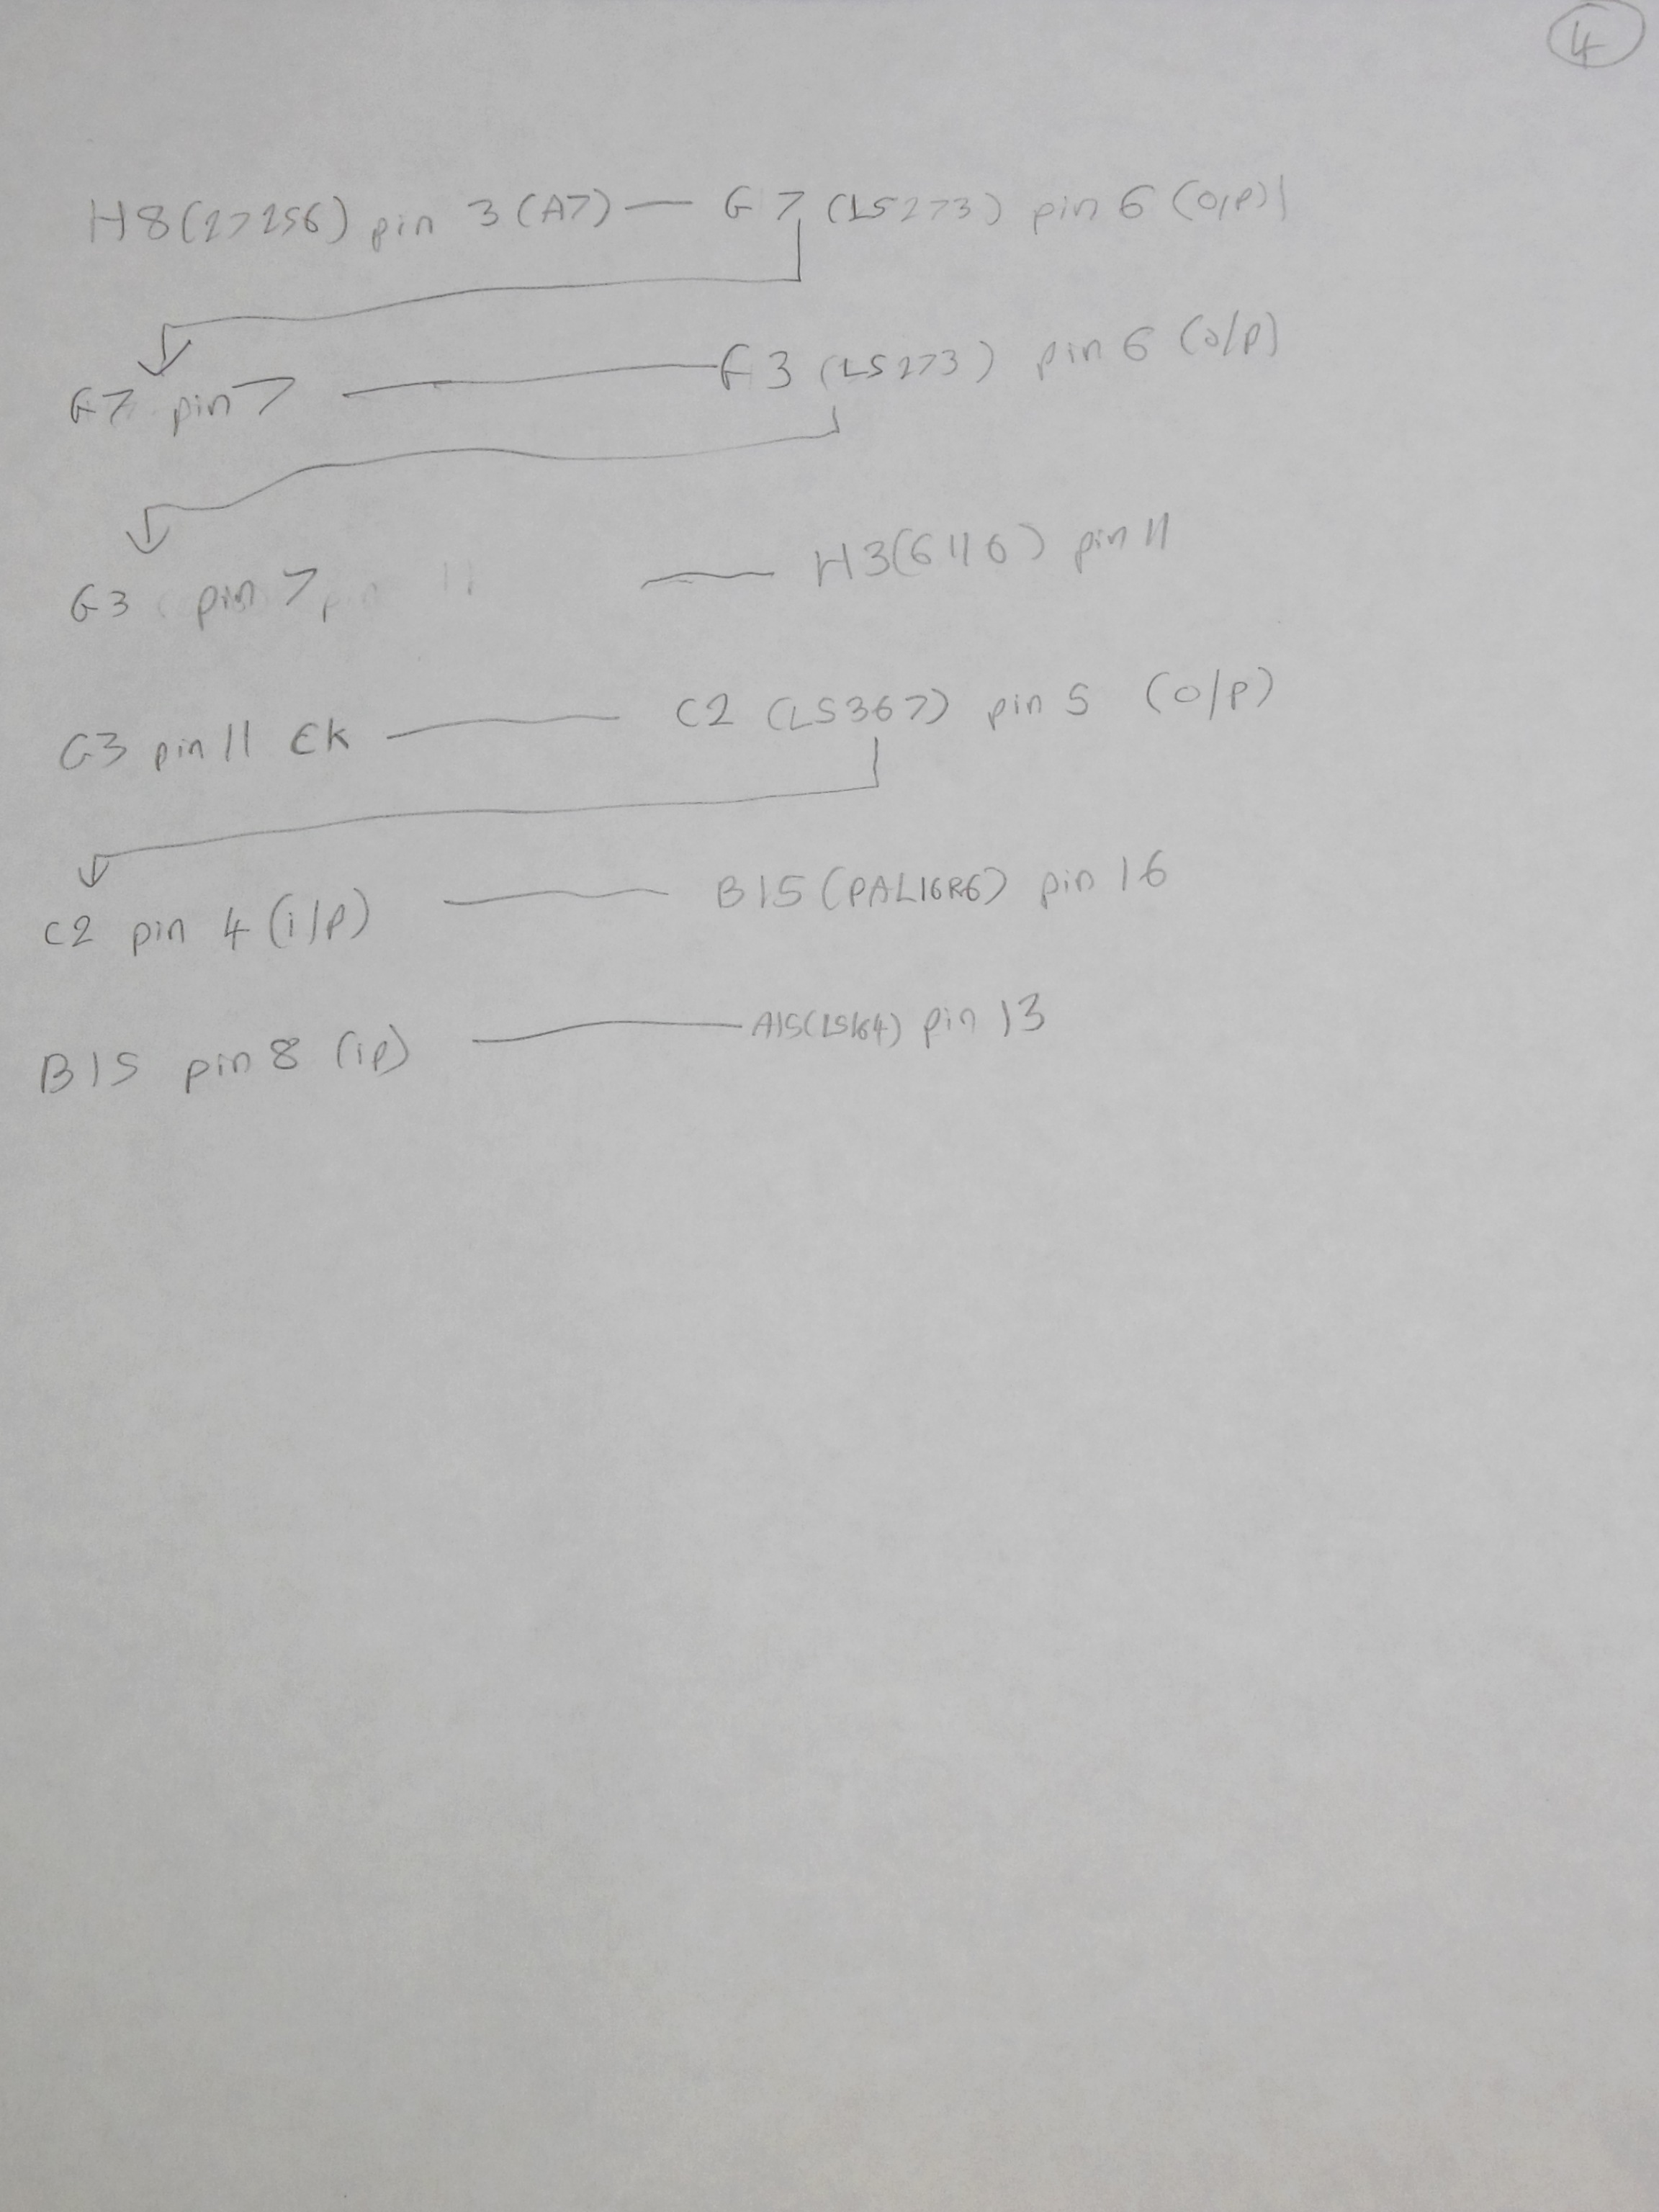 4
H8(27256) pin 3 (A7) — G7 (LS273) pin 6 (o/p)
G7 pin 7 — G3 (LS273) pin 6 (o/p)
G3 pin 7 — H3(6116) pin 11
G3 pin 11 CK — C2 (LS367) pin 5 (o/p)
C2 pin 4 (i/p) — B15 (PAL16R6) pin 16
B15 pin 8 (ip) — A15(LS164) pin 13